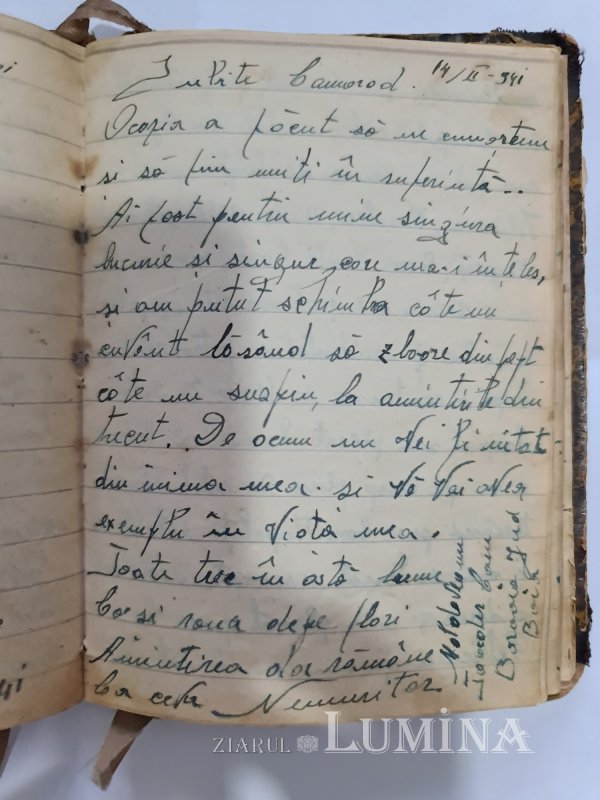 Iubite Camarad. 14/II-941
Ocazia a făcut să ne cunoaștem
si să fim uniți în suferință..
Ai fost pentru mine singura
bucurie si singur care m-a-i înțeles,
si am putut schimba câte un
cuvânt lăsând să zboare din pept
câte un suspin, la amintirile din
trecut. De acum nu vei fi uitat
din inima mea. si Vă Voi avea
exemplu în Viata mea.
Toate trec în astă lume
Ca si roua depe flori
Amintirea dar rămâne
Ca ceva Nemuritor
Moldoveanu
Teodor Com
Baia
ZIARUL LUMINA